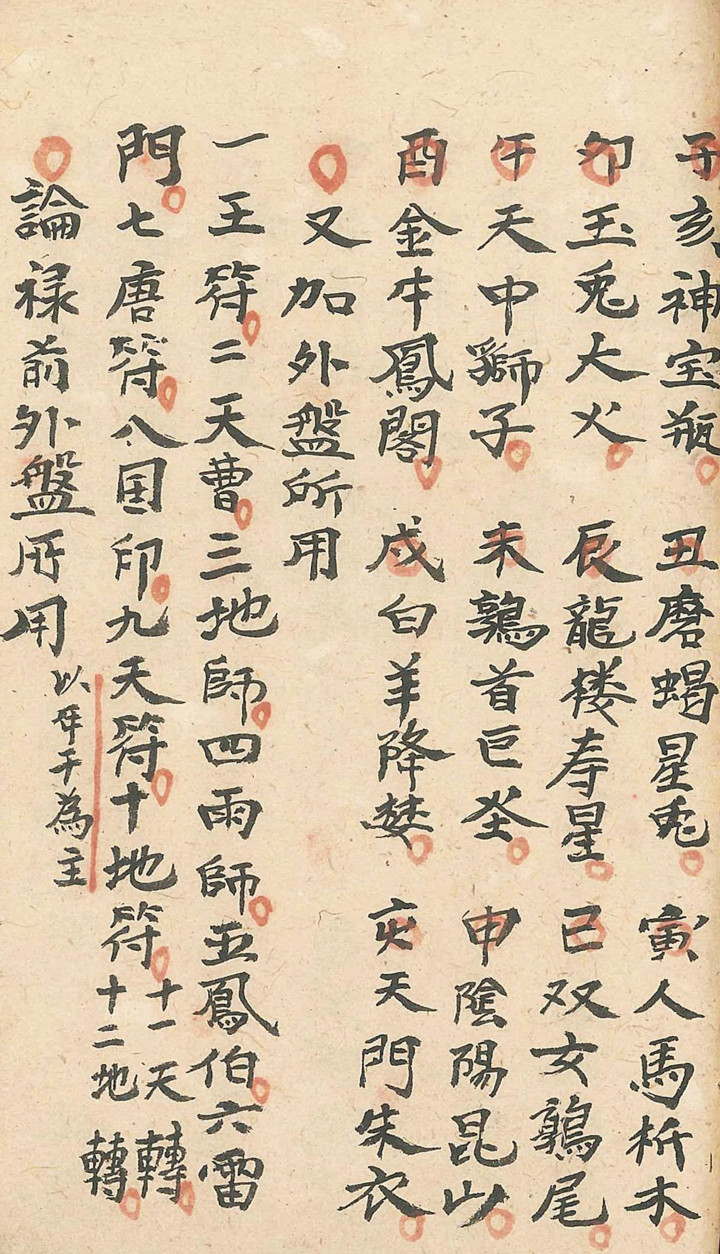 子亥神宝瓶 丑磨蝎星兎 寅人馬析木
卯玉兎大火 辰龍楼寿星 巳双女鶉尾
午天中獅子 未鶉首巨𨥧 申陰陽昆山
酉金牛鳳閣 戌白羊降婁 亥天門朱衣
又加外盤所用
一王符二天曹三地師四雨師五鳳伯六雷
門七唐符八国印九天符十地符十一天轉十二地轉
論禄前外盤所用 以年干為主